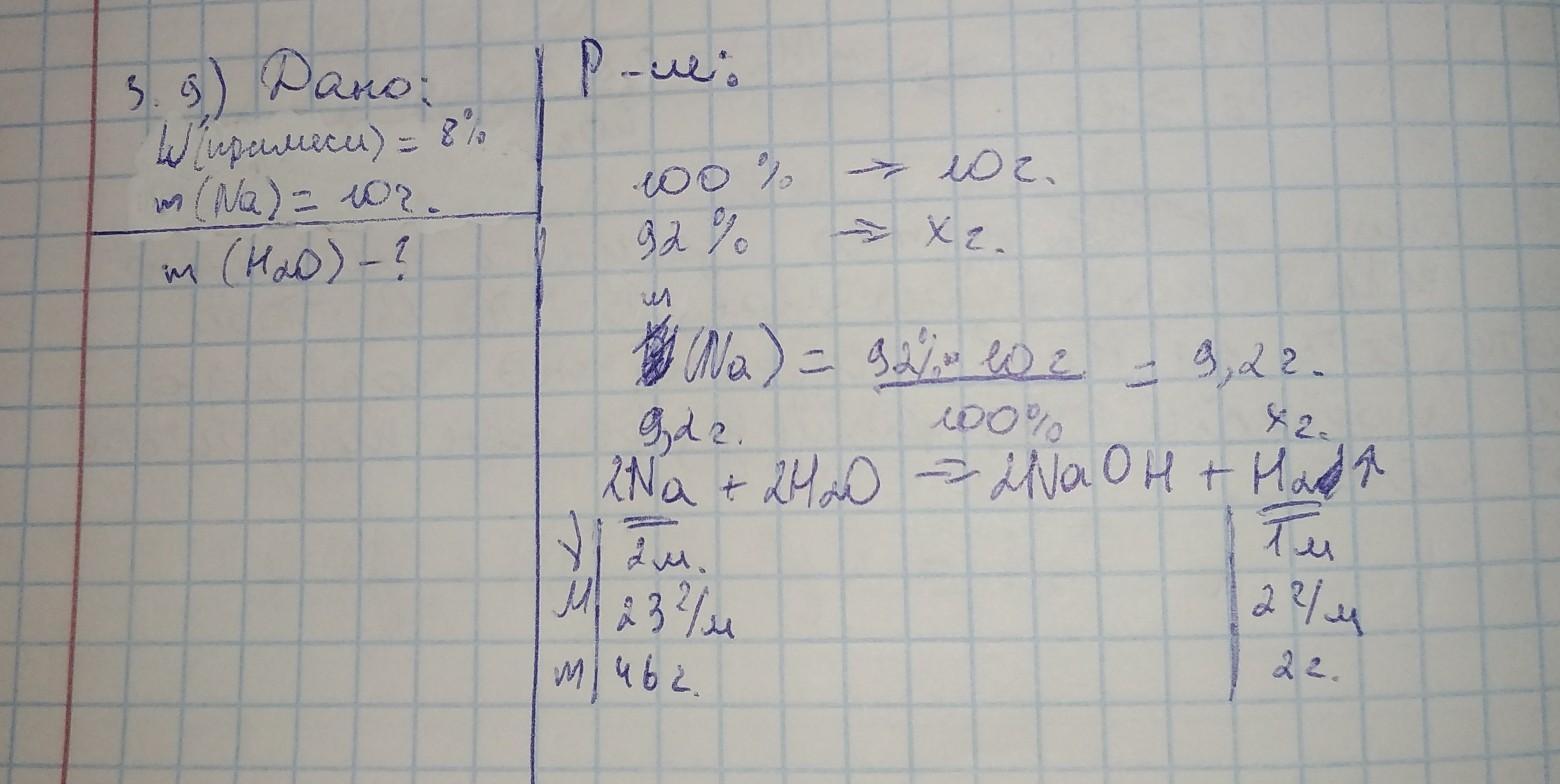 3. 9) Дано:
W(примеси) = 8%
m (Na) = 10г.
m (H2O) - ?
Р-ш:
100 % → 10г.
92 % ⇒ x г.
m
(Na) = 92% · 10 г = 9,2 г.
100%
9,2 г. x г.
2Na + 2H2O ⇒ 2NaOH + H2 ↑
ν 2м. 1м
M 23 г/м 2 г/м
m 46 г. 2 г.